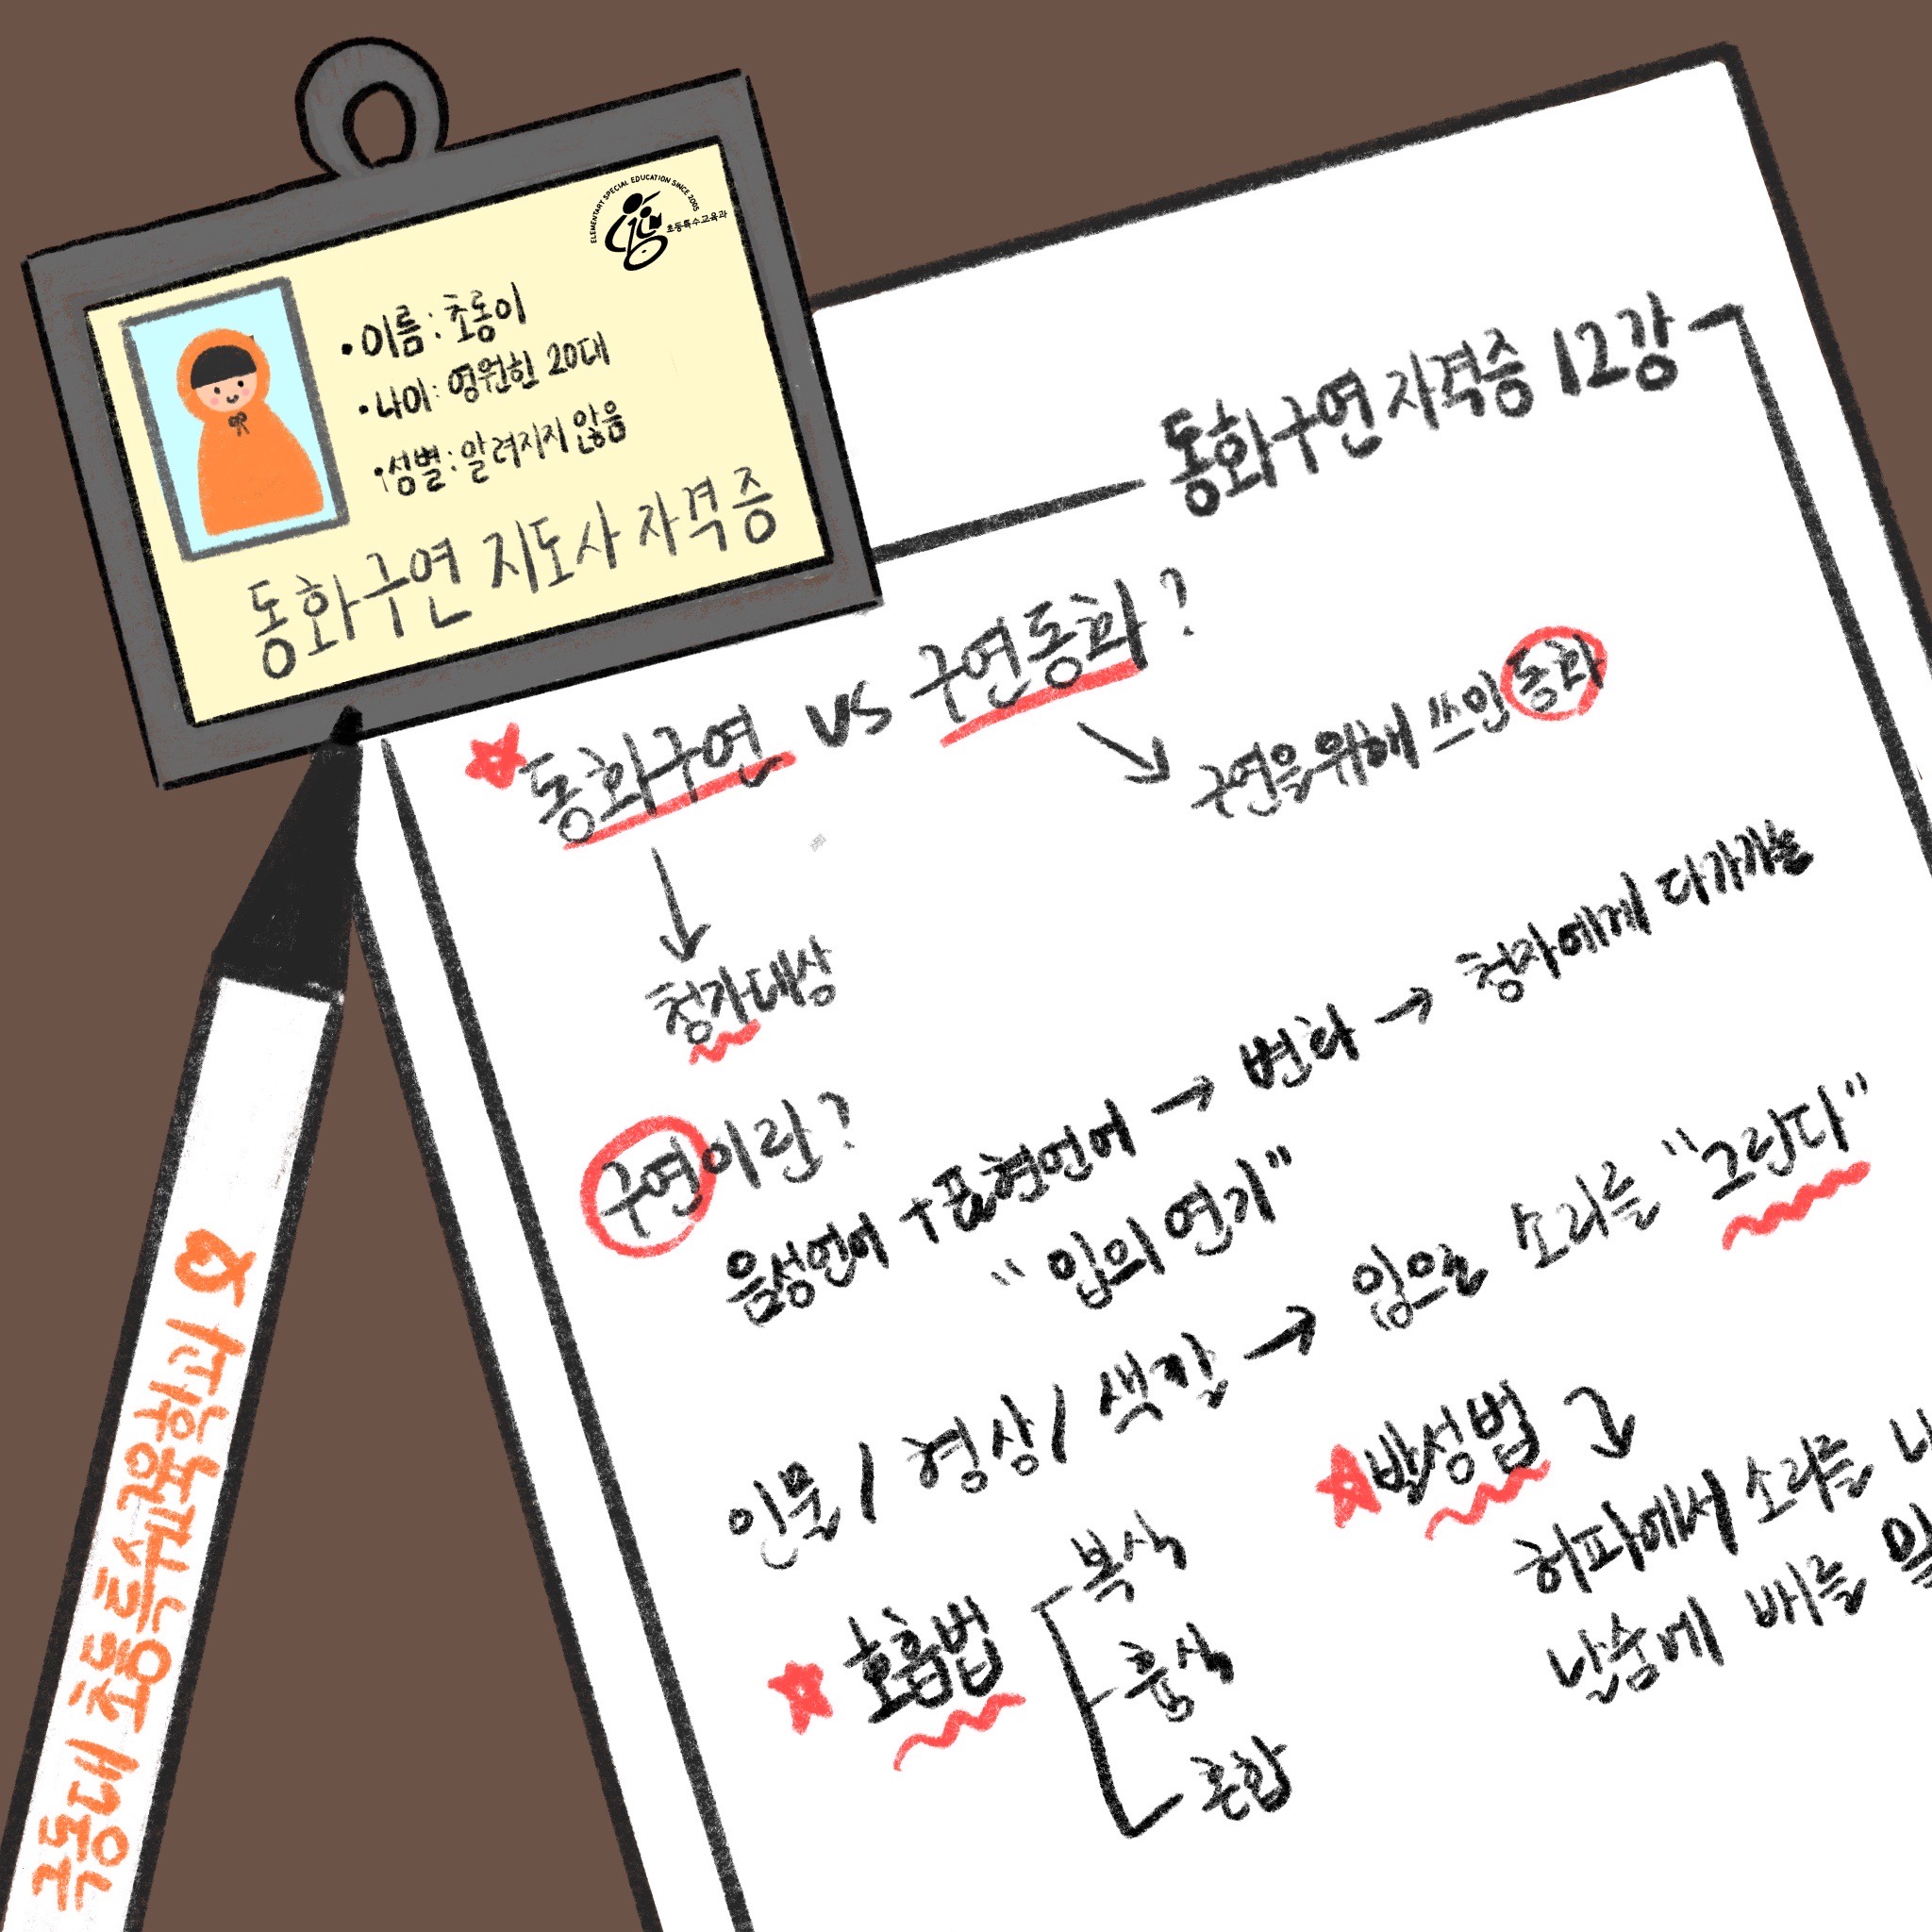 ELEMENTARY SPECIAL EDUCATION SINCE 2005
초등특수교육과
• 이름 : 초롱이
• 나이 : 영원한 20대
• 성별 : 알려지지 않음
동화구연 지도사 자격증
동화구연 자격증 12강
동화구연 vs 구연동화?
구연을 위해 쓰인 동화
청자대상
구연이란?
음성언어 + 표현언어 → 변화 → 청자에게 다가가는
"입의 연기"
인물 / 형상 / 색깔 → 입으로 소리를 "그린다"
호흡법
복식
흉식
혼합
발성법
허파에서 소리를
날숨에 배를
극동대 초등특수교육과